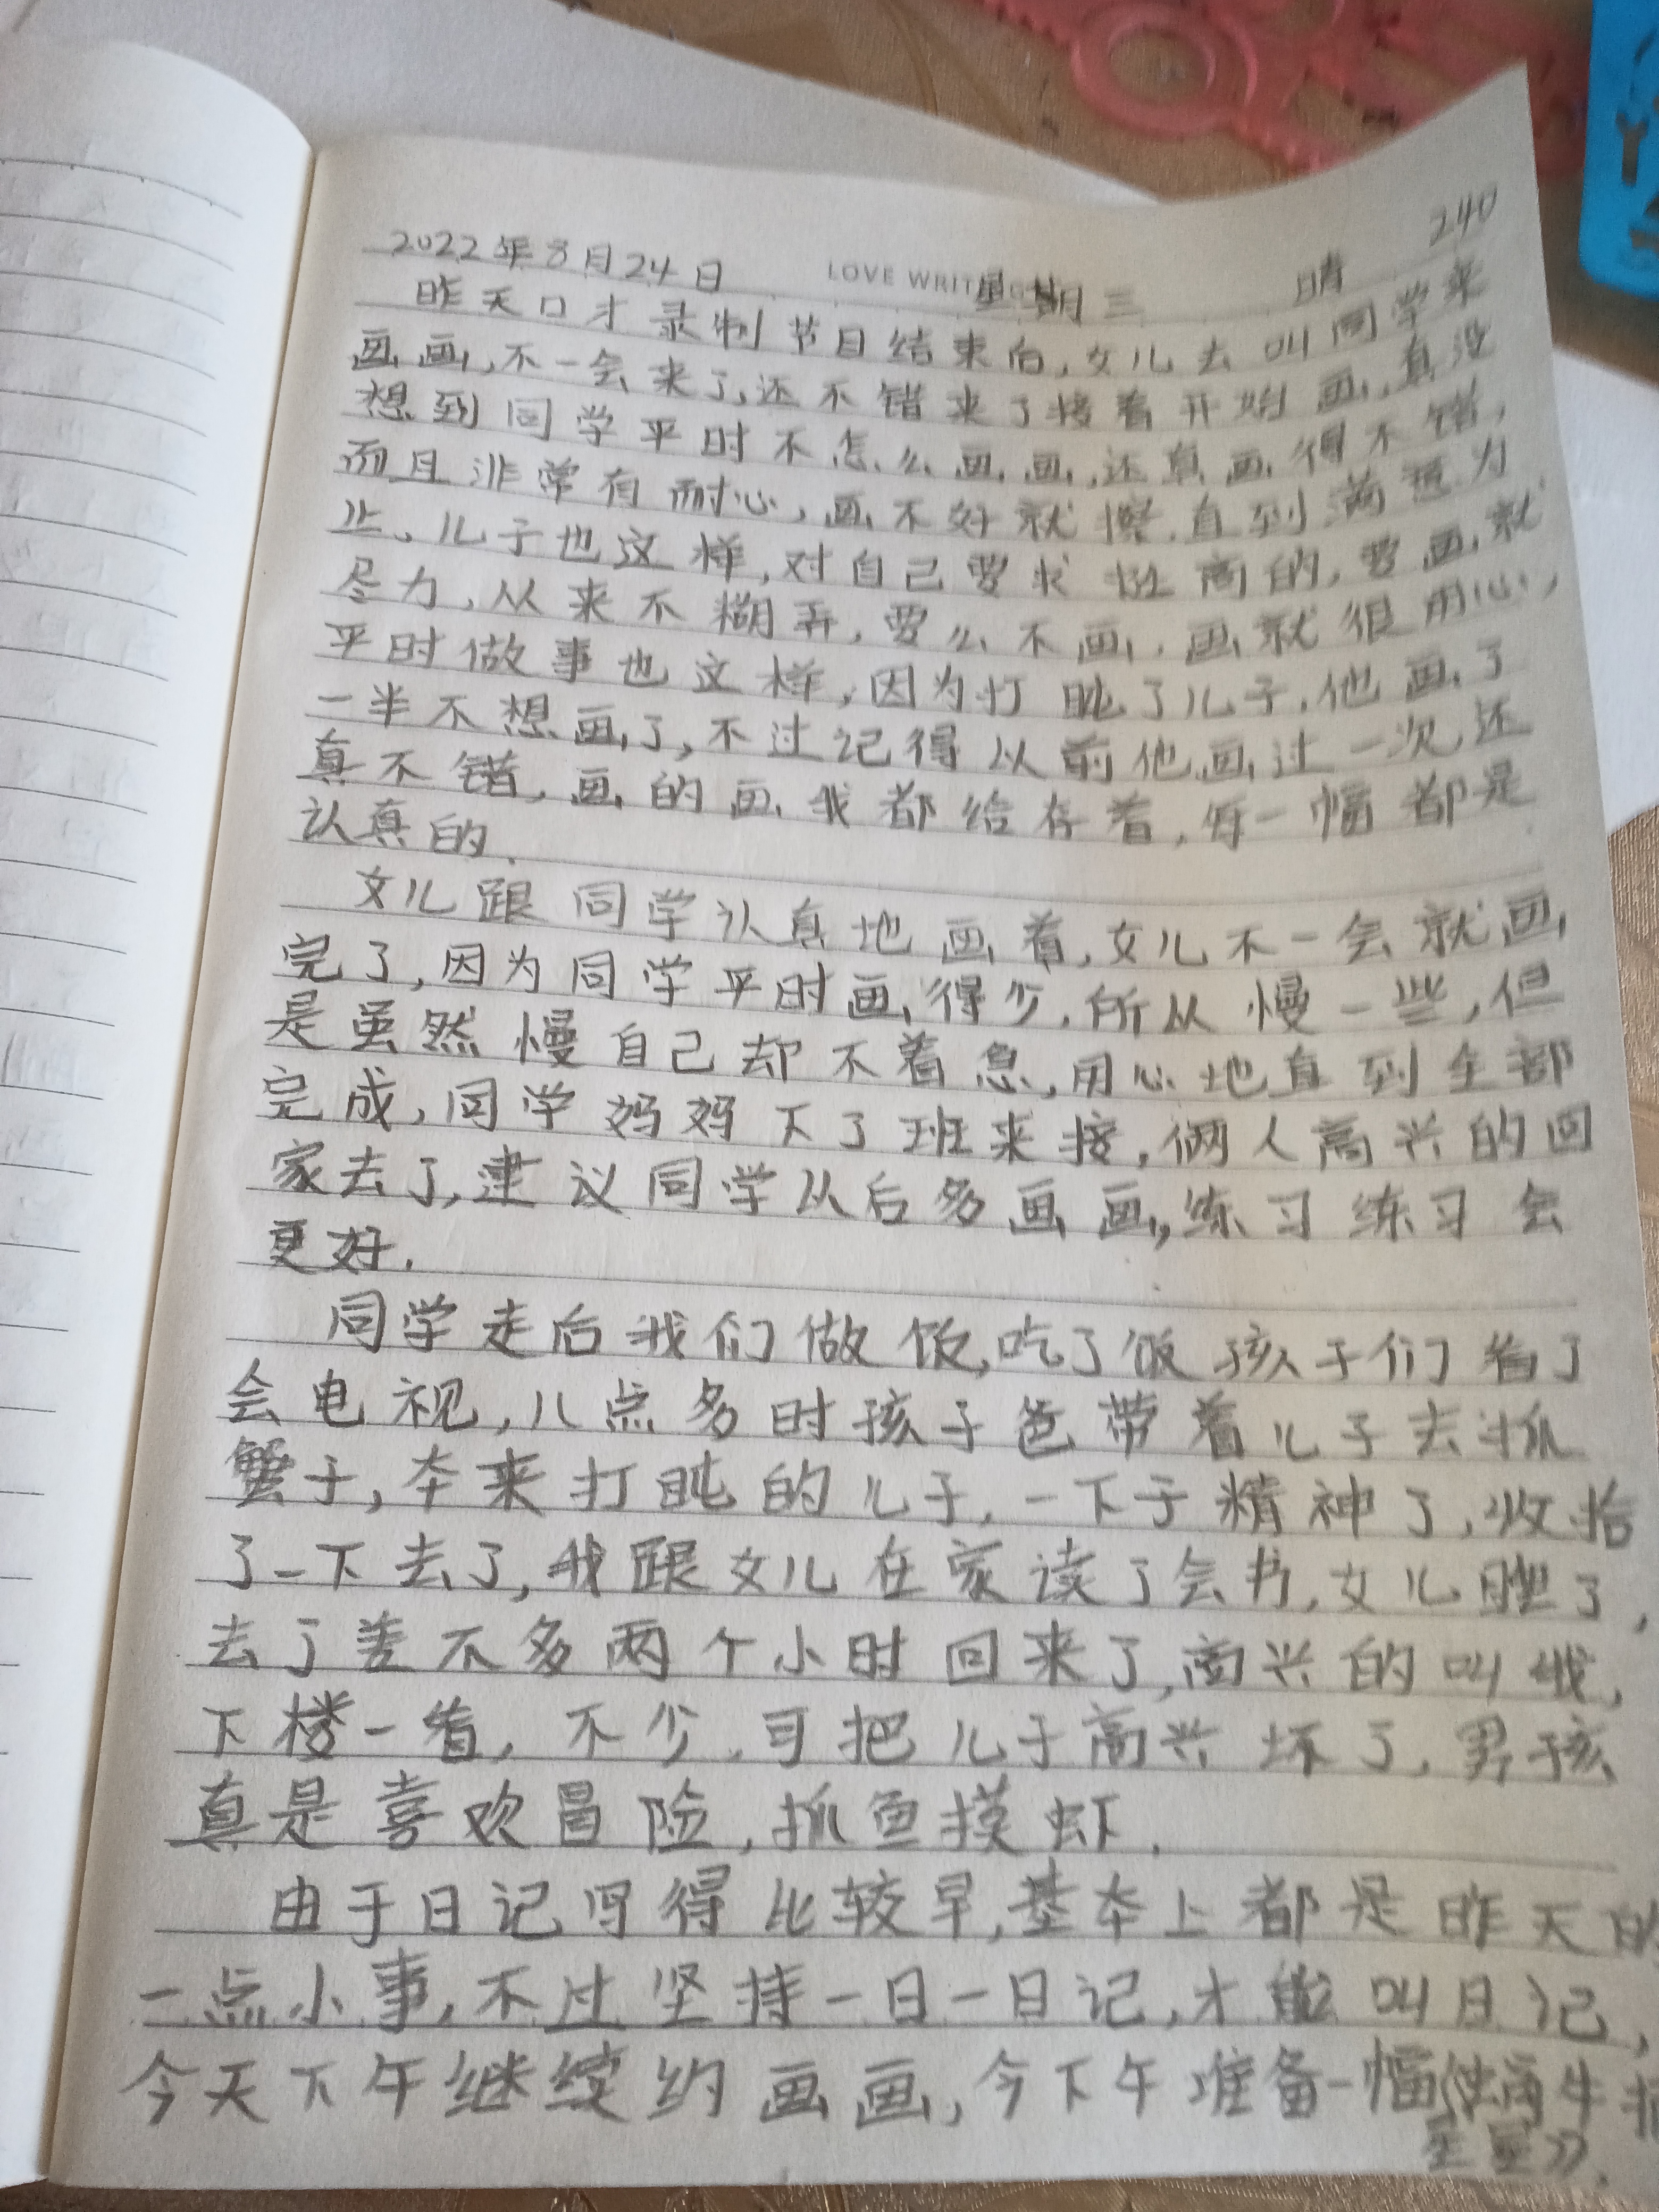 240
2022年8月24日 LOVE WRITING 星期三 晴
昨天口才录制节目结束后,女儿去叫同学来
画画,不一会来了,还不错来了接着开始画,真没
想到同学平时不怎么画画,还真画得不错,
而且非常有耐心,画不好就擦,直到满意为
止,儿子也这样,对自己要求挺高的,要画就
尽力,从来不糊弄,要么不画,画就很用心,
平时做事也这样,因为打盹了儿子,他画了
一半不想画了,不过记得以前他画过一次,还
真不错,画的画我都给存着,每一幅都是
认真的.
女儿跟同学认真地画着,女儿不一会就画
完了,因为同学平时画得少,所以慢一些,但
是虽然慢自己却不着急,用心地直到全部
完成,同学妈妈下了班来接,俩人高兴的回
家去了,建议同学以后多画画,练习练习会
更好.
同学走后我们做饭,吃了饭孩子们看了
会电视,八点多时孩子爸带着儿子去抓
蟹子,本来打盹的儿子,一下子精神了,收拾
了一下去了,我跟女儿在家读了会书,女儿睡了,
去了差不多两个小时回来了,高兴的叫我,
下楼一看,不少,可把儿子高兴坏了,男孩
真是喜欢冒险,抓鱼摸虾.
由于日记写得比较早,基本上都是昨天的
一点小事,不过坚持一日一日记,才能叫日记,
今天下午继续约画画,今下午准备一幅《蜗牛摘
星星》.